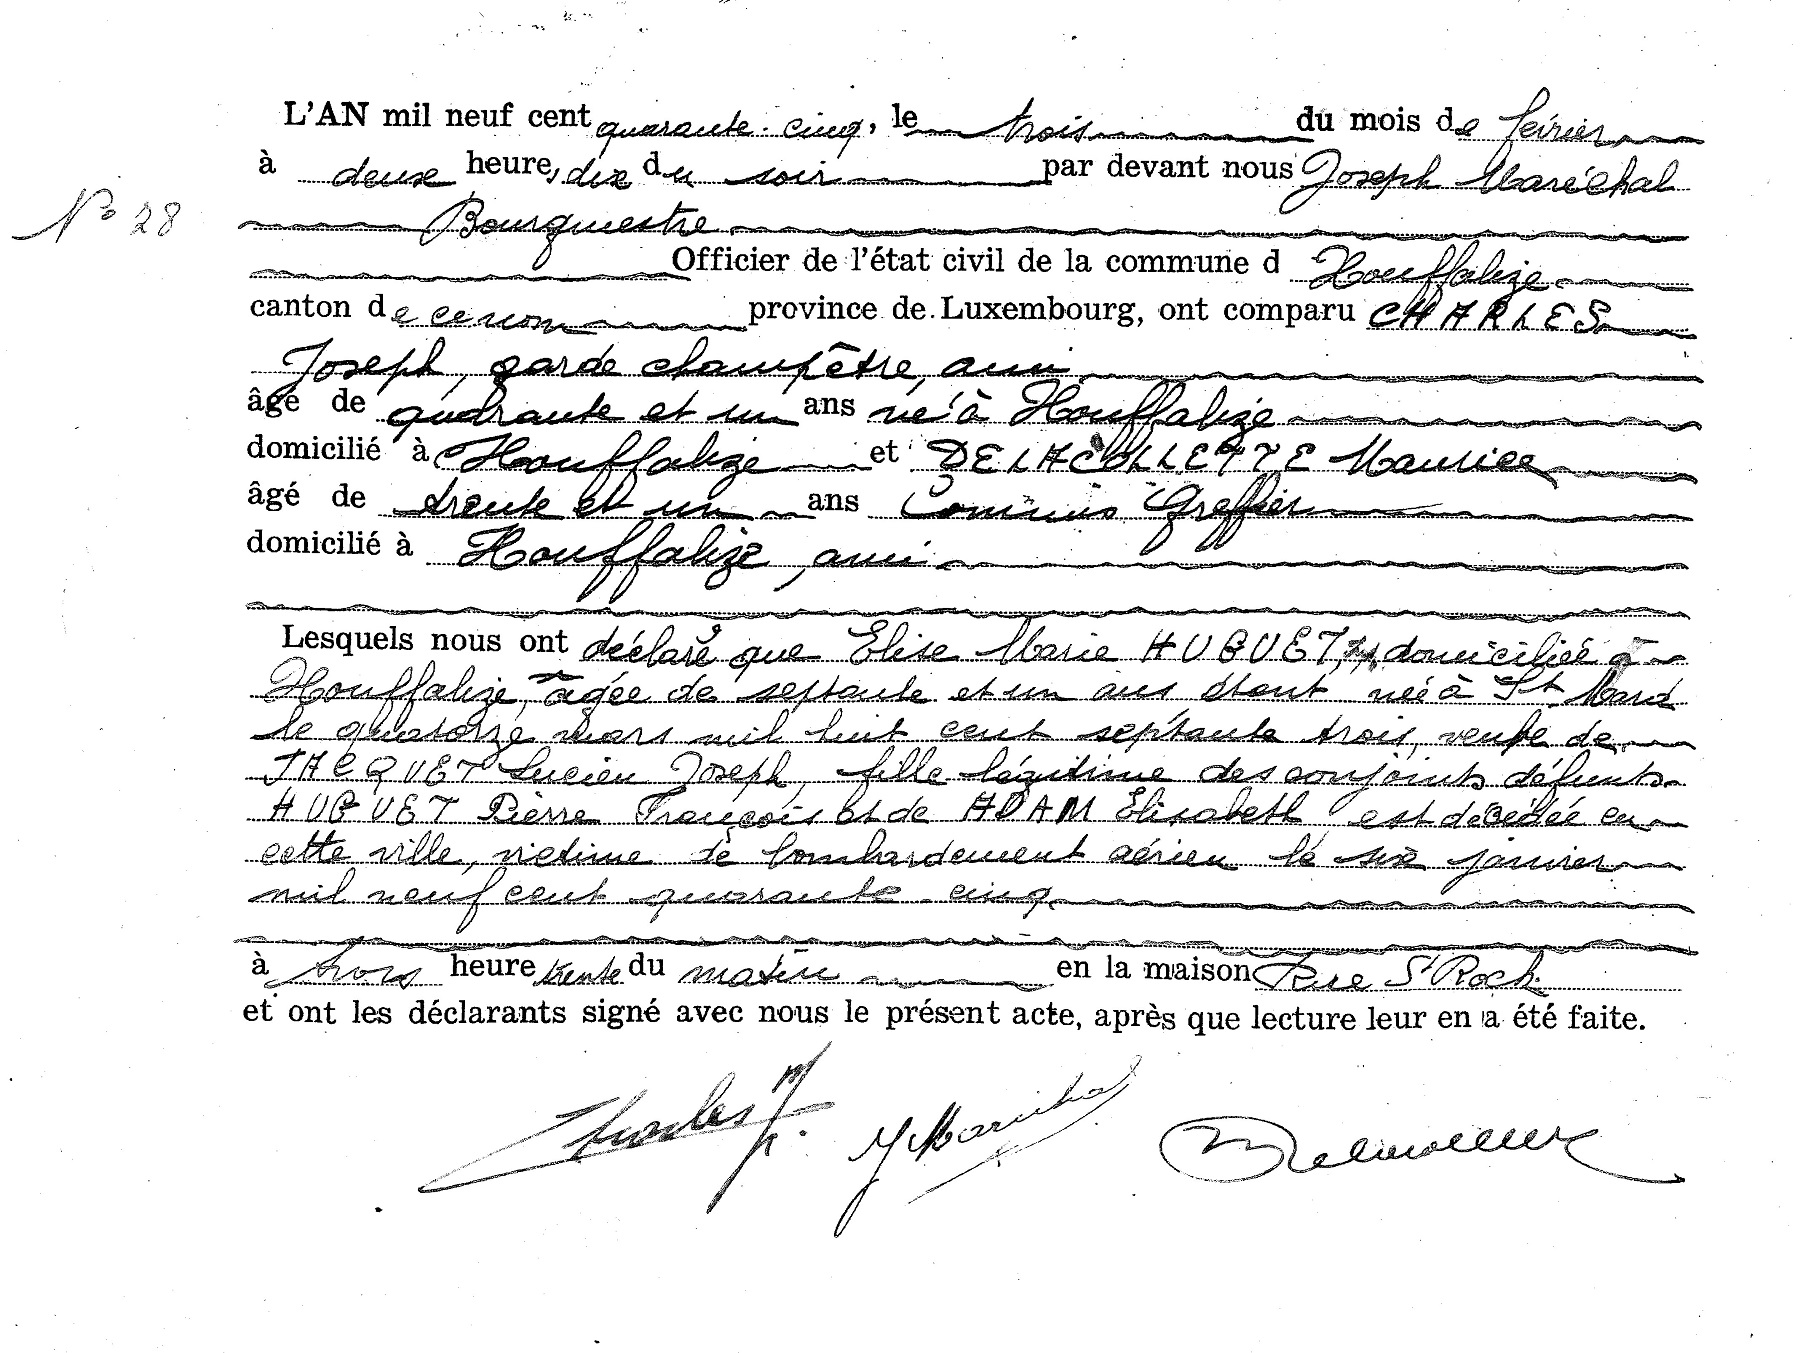 L'AN mil neuf cent quarante-cinq, le trois du mois de février
à deux heure, dix du soir par devant nous Joseph Maréchal
N° 28
Bourgmestre
Officier de l'état civil de la commune d Houffalize
canton de ce nom province de Luxembourg, ont comparu CHARLES
Joseph, garde champêtre, ami
âgé de quarante et un ans né à Houffalize
domicilié à Houffalize et DELACOLLETTE Maurice
âgé de trente et un ans Commis Greffier
domicilié à Houffalize, ami
Lesquels nous ont déclaré que Elise Marie HUGUET, domiciliée à
Houffalize, âgée de septante et un ans étant née à St Mard
le quatorze mars mil huit cent septante trois, veuve de
JACQUET Lucien Joseph, fille légitime des conjoints défunts
HUGUET Pierre François et de ADAM Elisabeth est décédée en
cette ville, victime de bombardement aérien le six janvier
mil neuf cent quarante-cinq
à trois heure trente du matin en la maison Rue St Roch
et ont les déclarants signé avec nous le présent acte, après que lecture leur en a été faite.
Charles J. JMaréchal